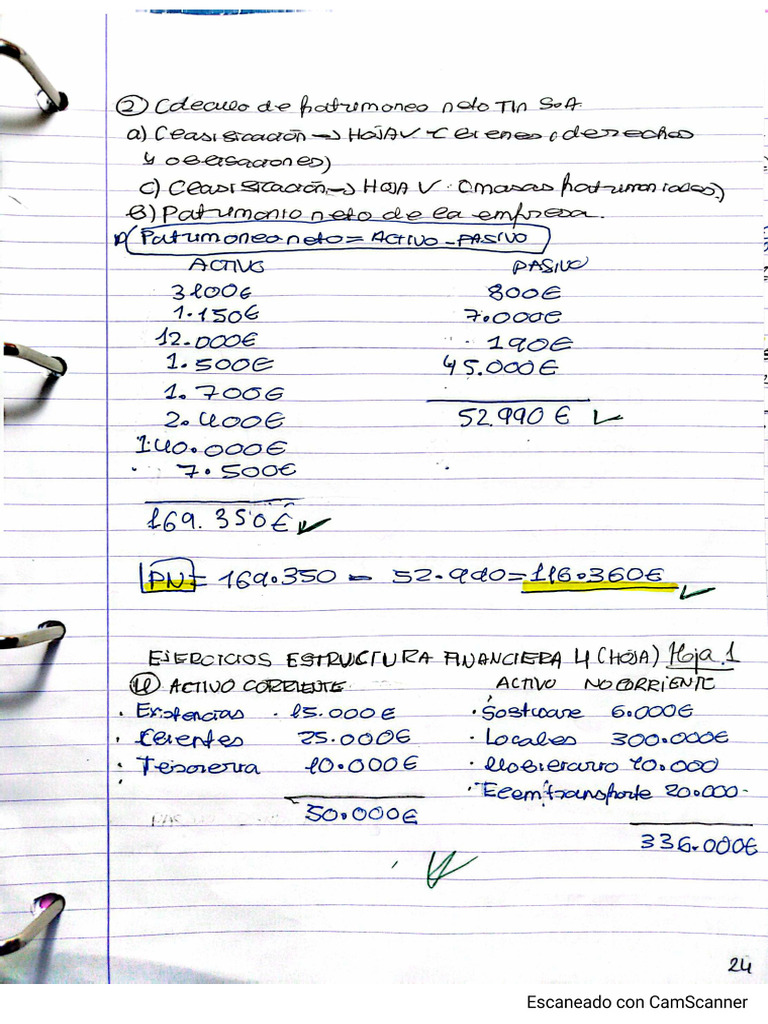 ② Cálculo de patrimoneo neto Tin S.A.
a) Clasificación → HOJA V (bienes, derechos
y obligaciones)
c) Clasificación → HOJA V (masas patrimoniales)
B) Patrimonio neto de la empresa.
Patrimoneo neto = ACTIVO - PASIVO
ACTIVO PASIVO
3100€ 800€
1.150€ 7.000€
12.000€ 190€
1.500€ 45.000€
1.700€
2.400€ 52.990€
140.000€
7.500€
169.350€
PN = 169.350 - 52.990 = 116.360€
EJERCICIOS ESTRUCTURA FINANCIERA 4 (HOJA) Hoja 1
ACTIVO CORRIENTE ACTIVO NO CORRIENTE
· Existencias 15.000€ · Software 6.000€
· Clientes 25.000€ · Locales 300.000€
· Tesorería 10.000€ · Mobiliario 10.000
· Elem transporte 20.000
50.000€
336.000€
24
Escaneado con CamScanner